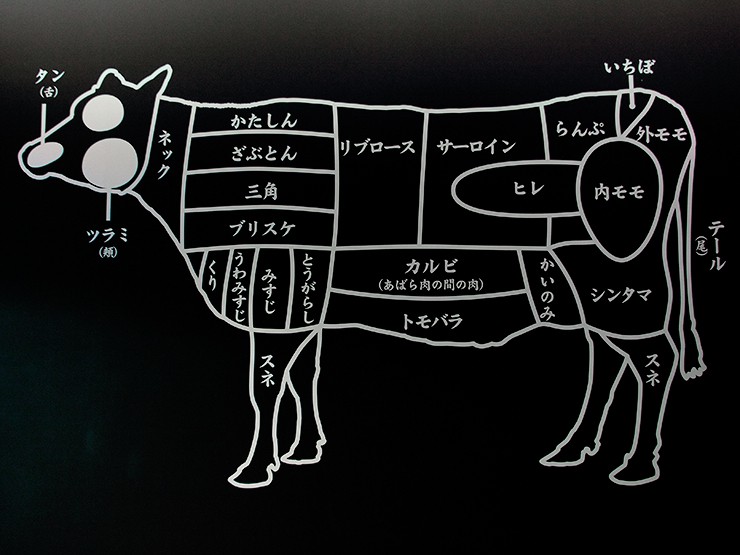 タン
(舌)
ネック
ツラミ
(頬)
かたしん
ざぶとん
三角
ブリスケ
くり
うわみすじ
みすじ
とうがらし
リブロース
サーロイン
ヒレ
らんぷ
いちぼ
外モモ
内モモ
カルビ
(あばら肉の間の肉)
トモバラ
かいのみ
シンタマ
テール
(尾)
スネ
スネ